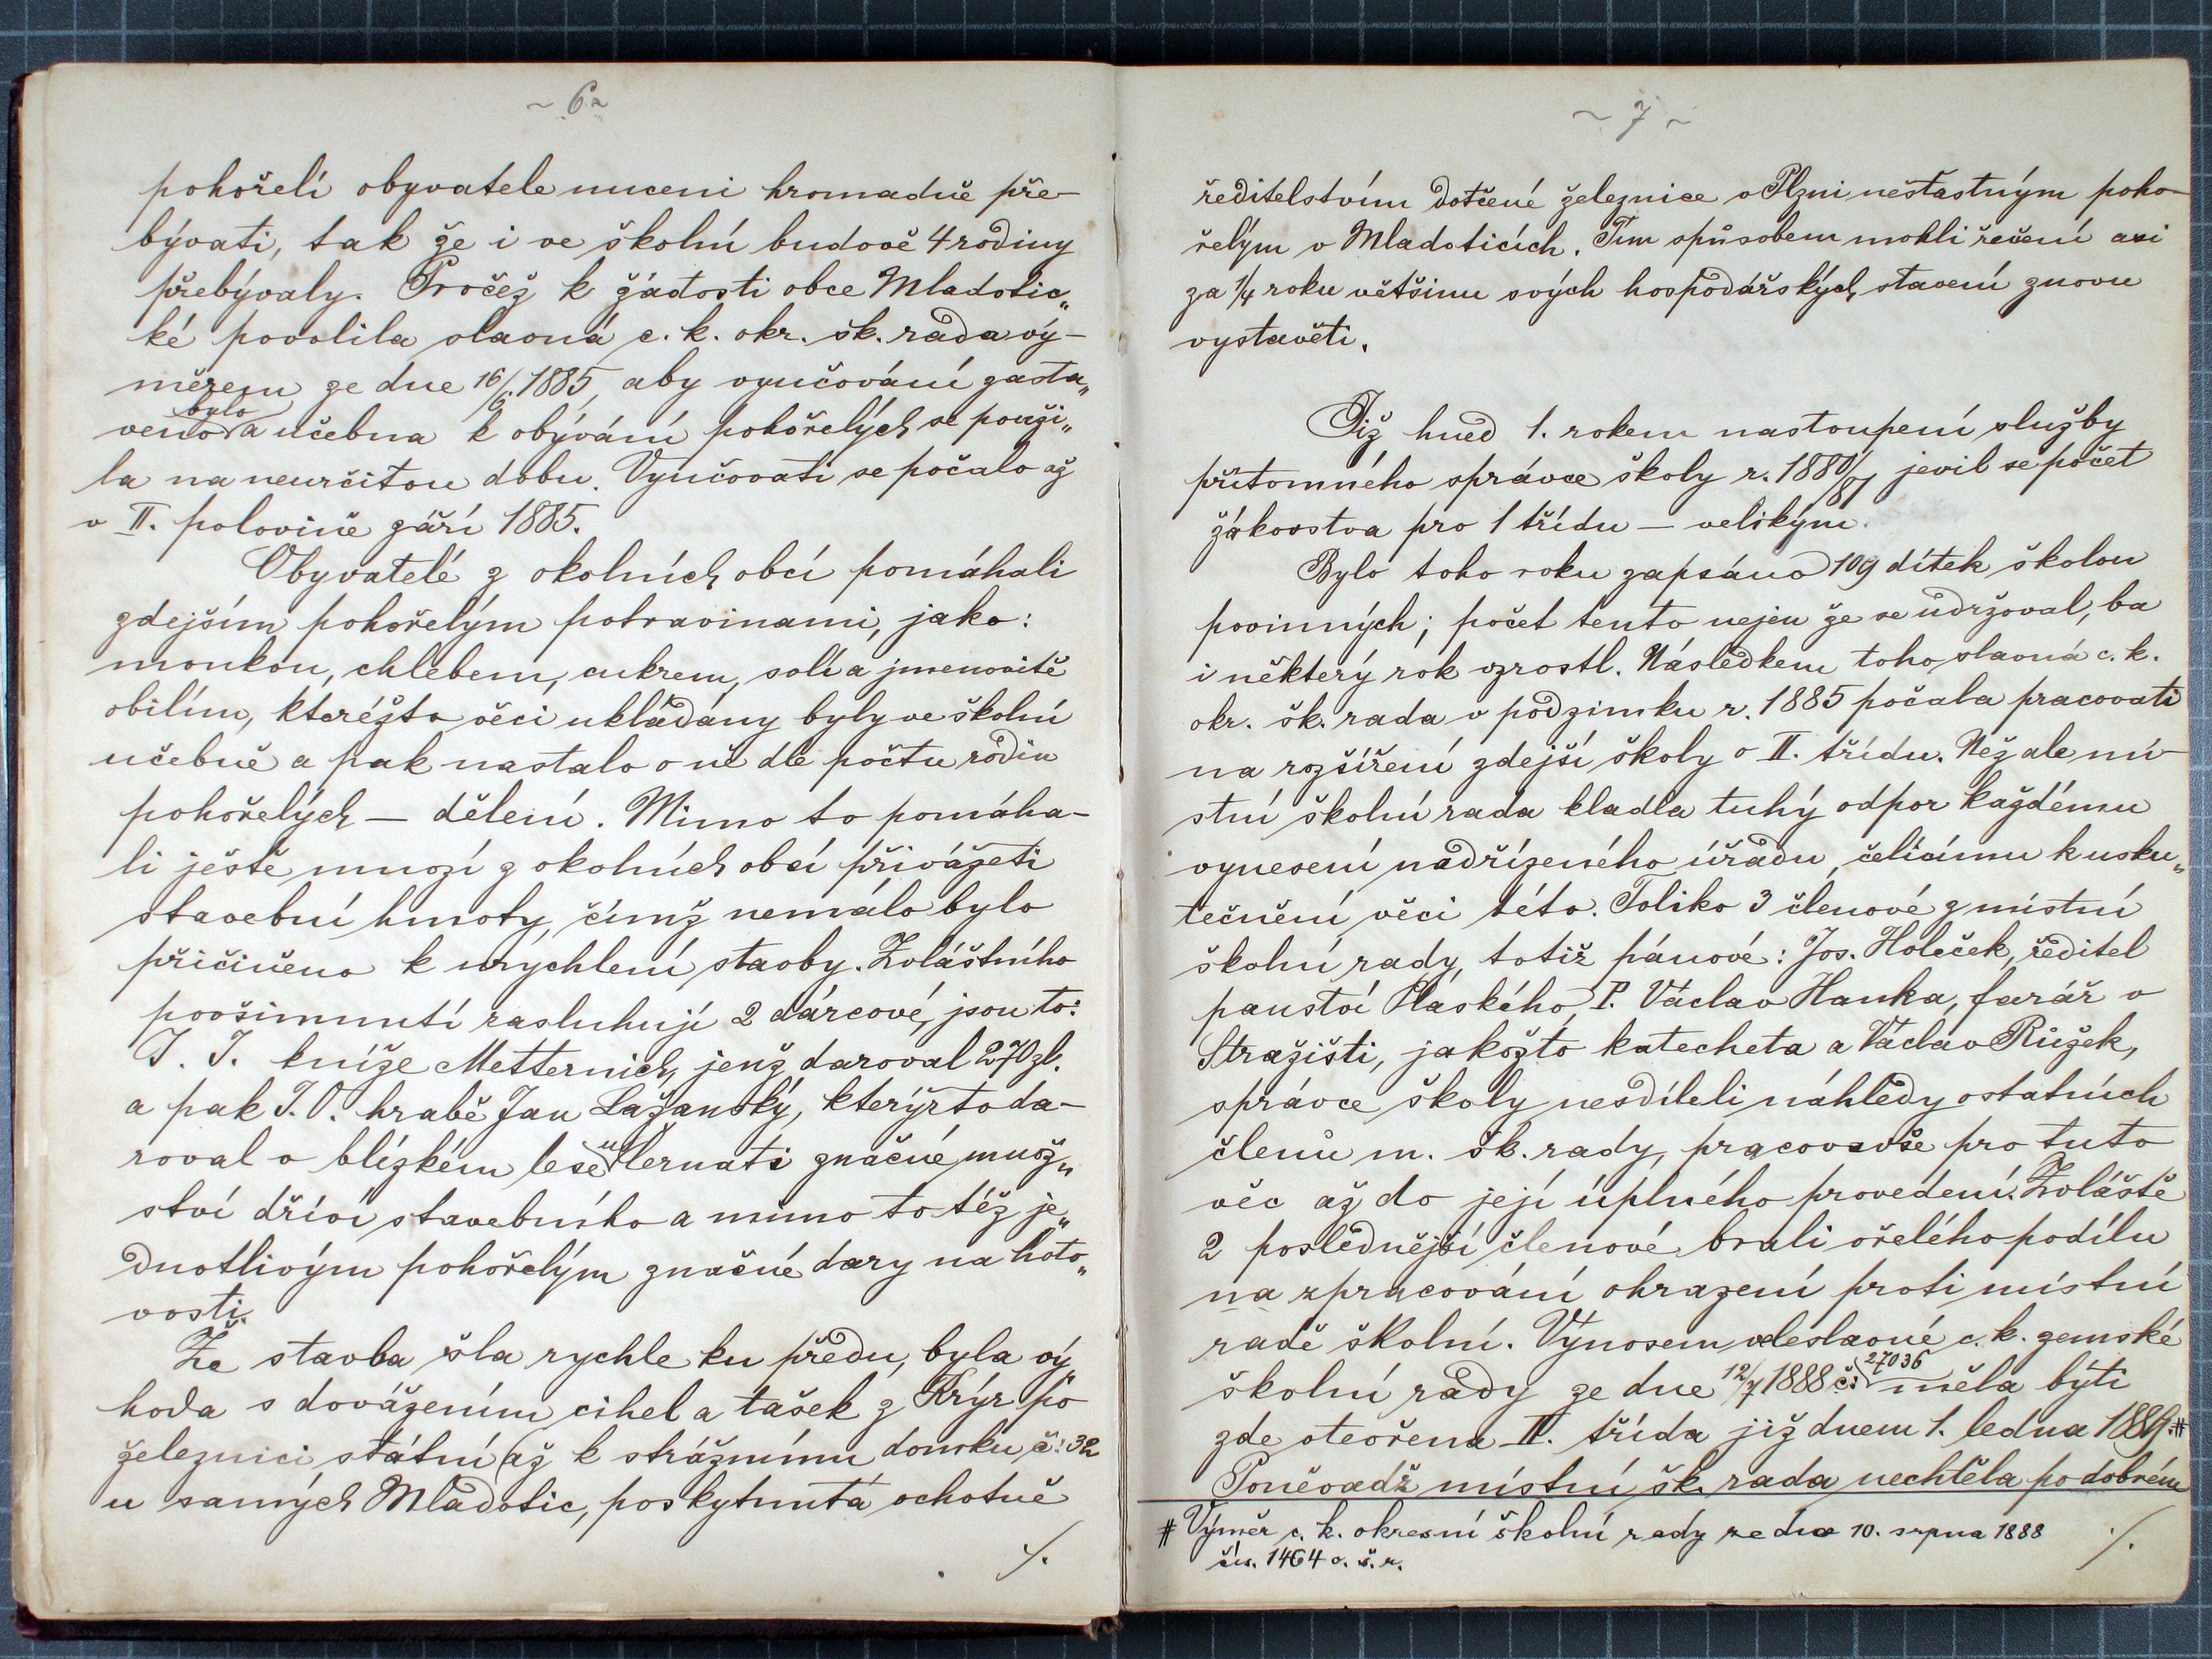 ~ 6 ~
pohořelí obyvatele nuceni hromadně pře-
bývati, tak že i ve školní budově 4 rodiny
přebývaly. Pročež k žádosti obce Mladotic„
ké povolila slavná c. k. okr. šk. rada vý-
měrem ze dne 16/6. 1885, aby vyučování zasta„
veno bylo a učebna k obývání pohořelých se použi„
la na neurčitou dobu. Vyučovati se počalo až
v II. polovině září 1885.
Obyvatelé z okolních obcí pomáhali
zdejším pohořelým potravinami, jako:
moukou, chlebem, cukrem, solí a jmenovitě
obilím, kteréžto věci ukládány byly ve školní
učebně a pak nastalo o ně dle počtu rodin
pohořelých — dělení. Mimo to pomáha-
li ještě mnozí z okolních obcí přivážeti
stavební hmoty, čímž nemálo bylo
přičiněno k urychlení stavby. Zvláštního
povšimnutí zasluhují 2 dárcové, jsou to:
J. J. kníže Metternich, jenž daroval 270 zl.
a pak J. O. hrabě Jan Lažanský, kterýžto da-
roval v blízkém lese u Černati značné množ„
ství dříví stavebního a mimo to též je„
dnotlivým pohořelým značné dary na hoto„
vosti.
Že stavba šla rychle ku předu, byla vý
hoda s dovážením cihel a tašek z Krýr po
železnici státní až k strážnímu domku č: 32
u samých Mladotic, poskytnutá ochotně
./.
~ 7 ~
ředitelstvím dotčené železnice v Plzni nešťastným poho-
řelým v Mladoticích. Tím spůsobem mohli řečení asi
za 1/4 roku většinu svých hospodářských stavení znovu
vystavěti.
Již hned 1. rokem nastoupení služby
přítomného správce školy r. 1880/81 jevil se počet
žákovstva pro 1 třídu — velikým.
Bylo toho roku zapsáno 109 dítek školou
povinných; počet tento nejen že se udržoval, ba
i některý rok vzrostl. Následkem toho slavná c. k.
okr. šk. rada v podzimku r. 1885 počala pracovati
na rozšíření zdejší školy o II. třídu. Než ale mí-
stní školní rada kladla tuhý odpor každému
vynesení nadřízeného úřadu, čelícímu k usku„
tečnění věci této. Toliko 3 členové z místní
školní rady, totiž pánové: Jos. Holeček, ředitel
panství Plaského, P. Václav Hanka, farář v
Stražišti, jakožto katecheta a Václav Růžek,
správce školy nesdíleli náhledy ostatních
členů m. šk. rady, pracovavše pro tuto
věc až do její úplného provedení. Zvláště
2 poslednější členové brali vřelého podílu
na zpracování ohrazení proti místní
radě školní. Výnosem veleslavné c. k. zemské
školní rády ze dne 12/7 1888 č: 27036 měla býti
zde otevřena II. třída již dnem 1. ledna 1889.#
Poněvadž místní šk. rada nechtěla po dobrém
# Výměr c. k. okresní školní rady ze dne 10. srpna 1888
čís. 1464 o. š. r.
./.